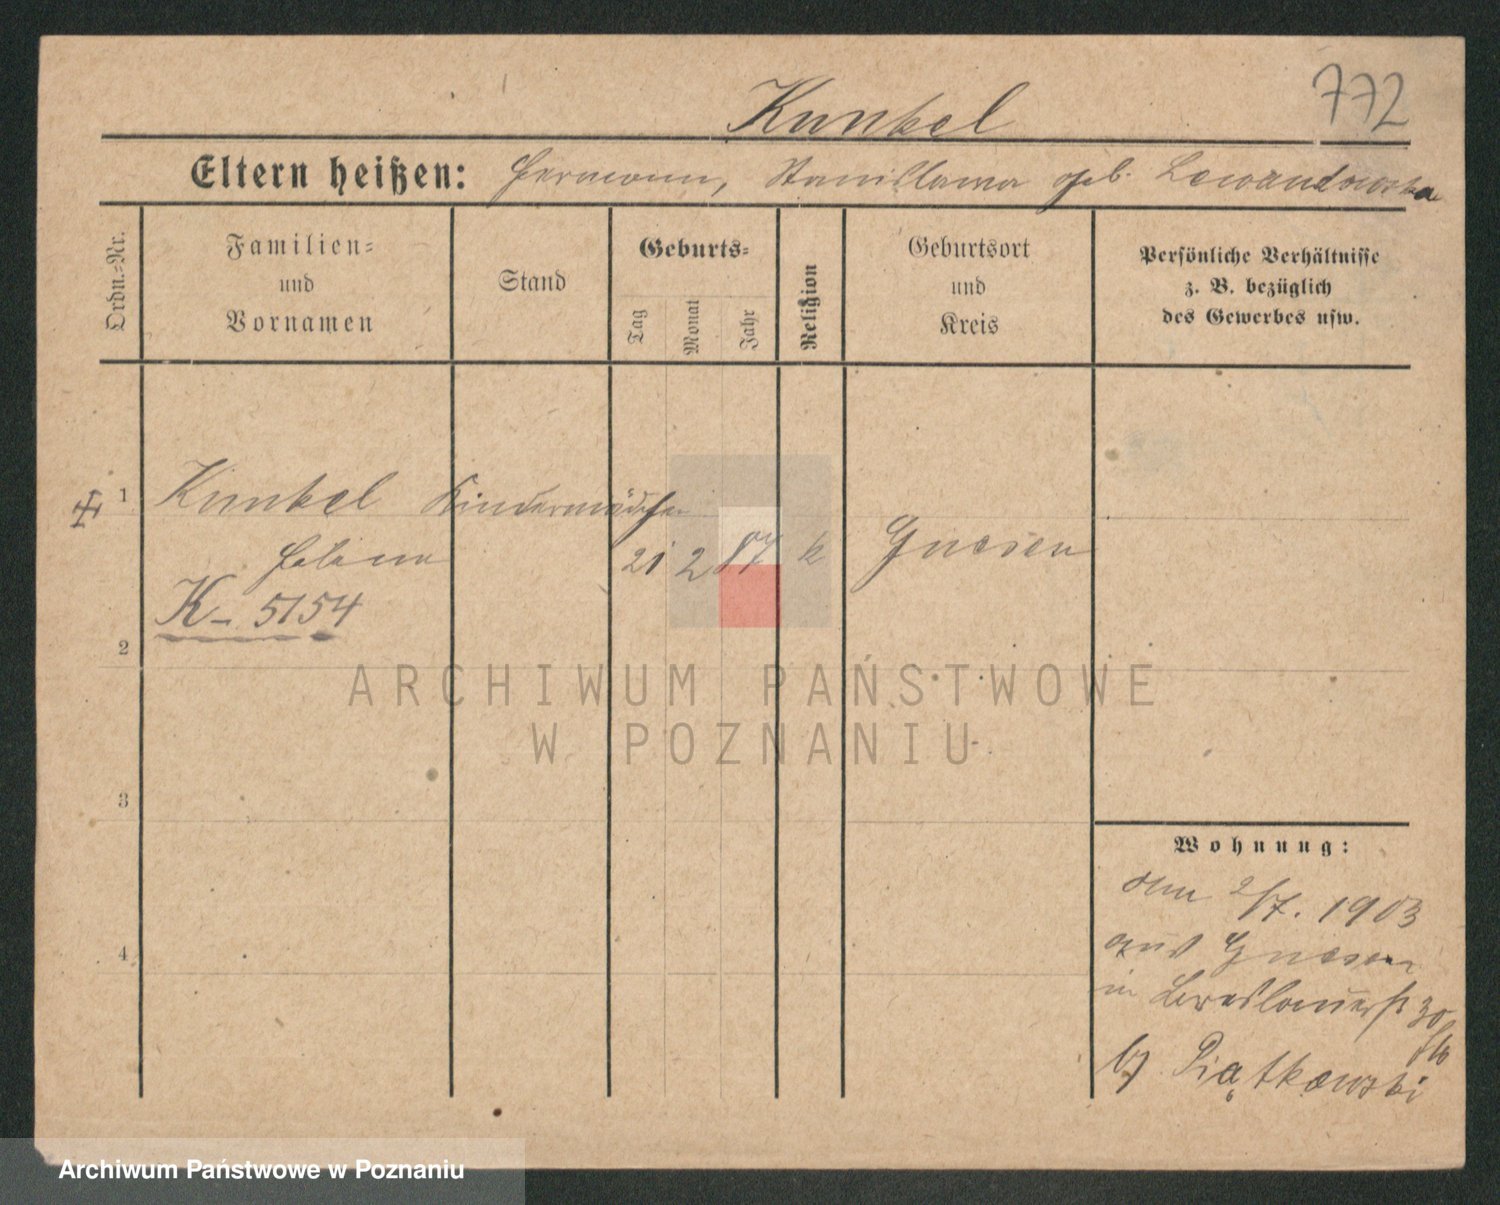 772
Kunkel
Eltern heißen: Hermann, Stanislawa geb. Lewandowska
Ordn.=Nr.
Familien=
und
Vornamen
Stand
Geburts=
Tag
Monat
Jahr
Religion
Geburtsort
und
Kreis
Persönliche Verhältnisse
z. B. bezüglich
des Gewerbes usw.
1
Kunkel Kindermädchen
Helene
21 2 87 k Gnesen
K- 5154
2
3
4
ARCHIWUM PAŃSTWOWE
W POZNANIU
Wohnung:
den 2/7. 1903
aus Gnesen
in Breslauerst 30
b/ Piątkowski
Archiwum Państwowe w Poznaniu